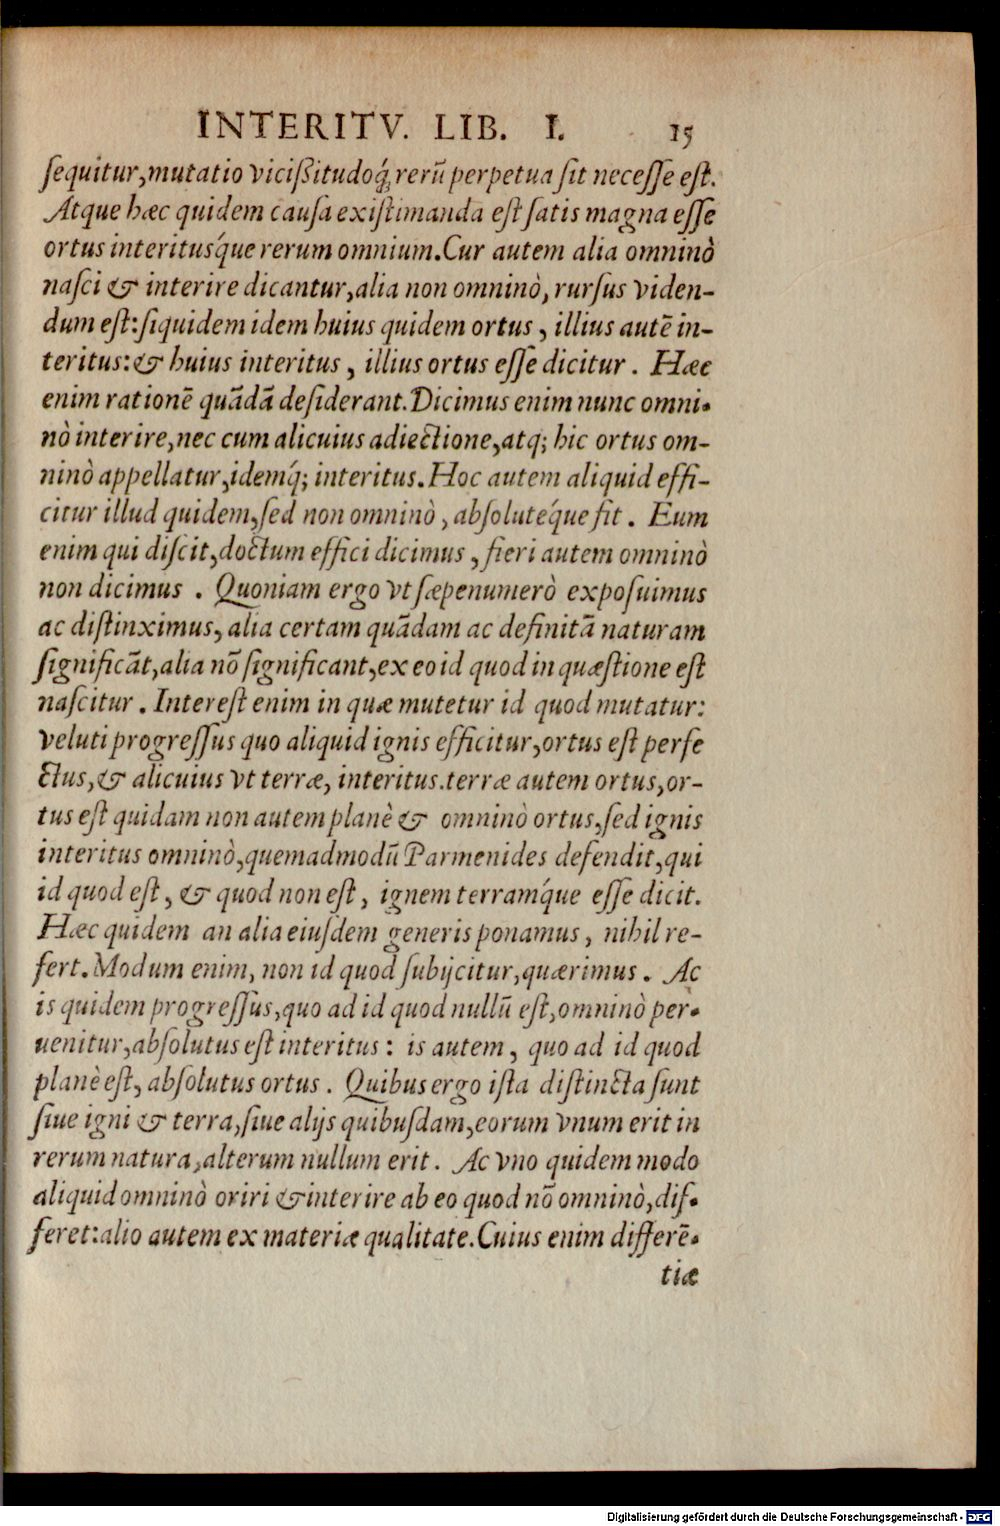 INTERITV. LIB. I. 15
sequitur, mutatio vicißitudoq́; rerū perpetua sit necesse est.
Atque hæc quidem causa existimanda est satis magna esse
ortus interitusq́ue rerum omnium. Cur autem alia omninò
nasci & interire dicantur, alia non omninò, rursus viden-
dum est: siquidem idem huius quidem ortus, illius autē in-
teritus: & huius interitus, illius ortus esse dicitur. Hæc
enim rationē quādā desiderant. Dicimus enim nunc omni-
nò interire, nec cum alicuius adiectione, atq; hic ortus om-
ninò appellatur, idemq́; interitus. Hoc autem aliquid effi-
citur illud quidem, sed non omninò, absoluteq́ue fit. Eum
enim qui discit, doctum effici dicimus, fieri autem omninò
non dicimus. Quoniam ergo vt sæpenumerò exposuimus
ac distinximus, alia certam quādam ac definitā naturam
significāt, alia nō significant, ex eo id quod in quæstione est
nascitur. Interest enim in quæ mutetur id quod mutatur:
veluti progressus quo aliquid ignis efficitur, ortus est perfe
ctus, & alicuius vt terræ, interitus. terræ autem ortus, or-
tus est quidam non autem planè & omninò ortus, sed ignis
interitus omninò, quemadmodū Parmenides defendit, qui
id quod est, & quod non est, ignem terramq́ue esse dicit.
Hæc quidem an alia eiusdem generis ponamus, nihil re-
fert. Modum enim, non id quod subijcitur, quærimus. Ac
is quidem progressus, quo ad id quod nullū est, omninò per-
uenitur, absolutus est interitus: is autem, quo ad id quod
planè est, absolutus ortus. Quibus ergo ista distincta sunt
siue igni & terra, siue alijs quibusdam, eorum vnum erit in
rerum natura, alterum nullum erit. Ac vno quidem modo
aliquid omninò oriri & interire ab eo quod nō omninò, dif-
feret: alio autem ex materiæ qualitate. Cuius enim differē-
tiæ
Digitalisierung gefördert durch die Deutsche Forschungsgemeinschaft - DFG